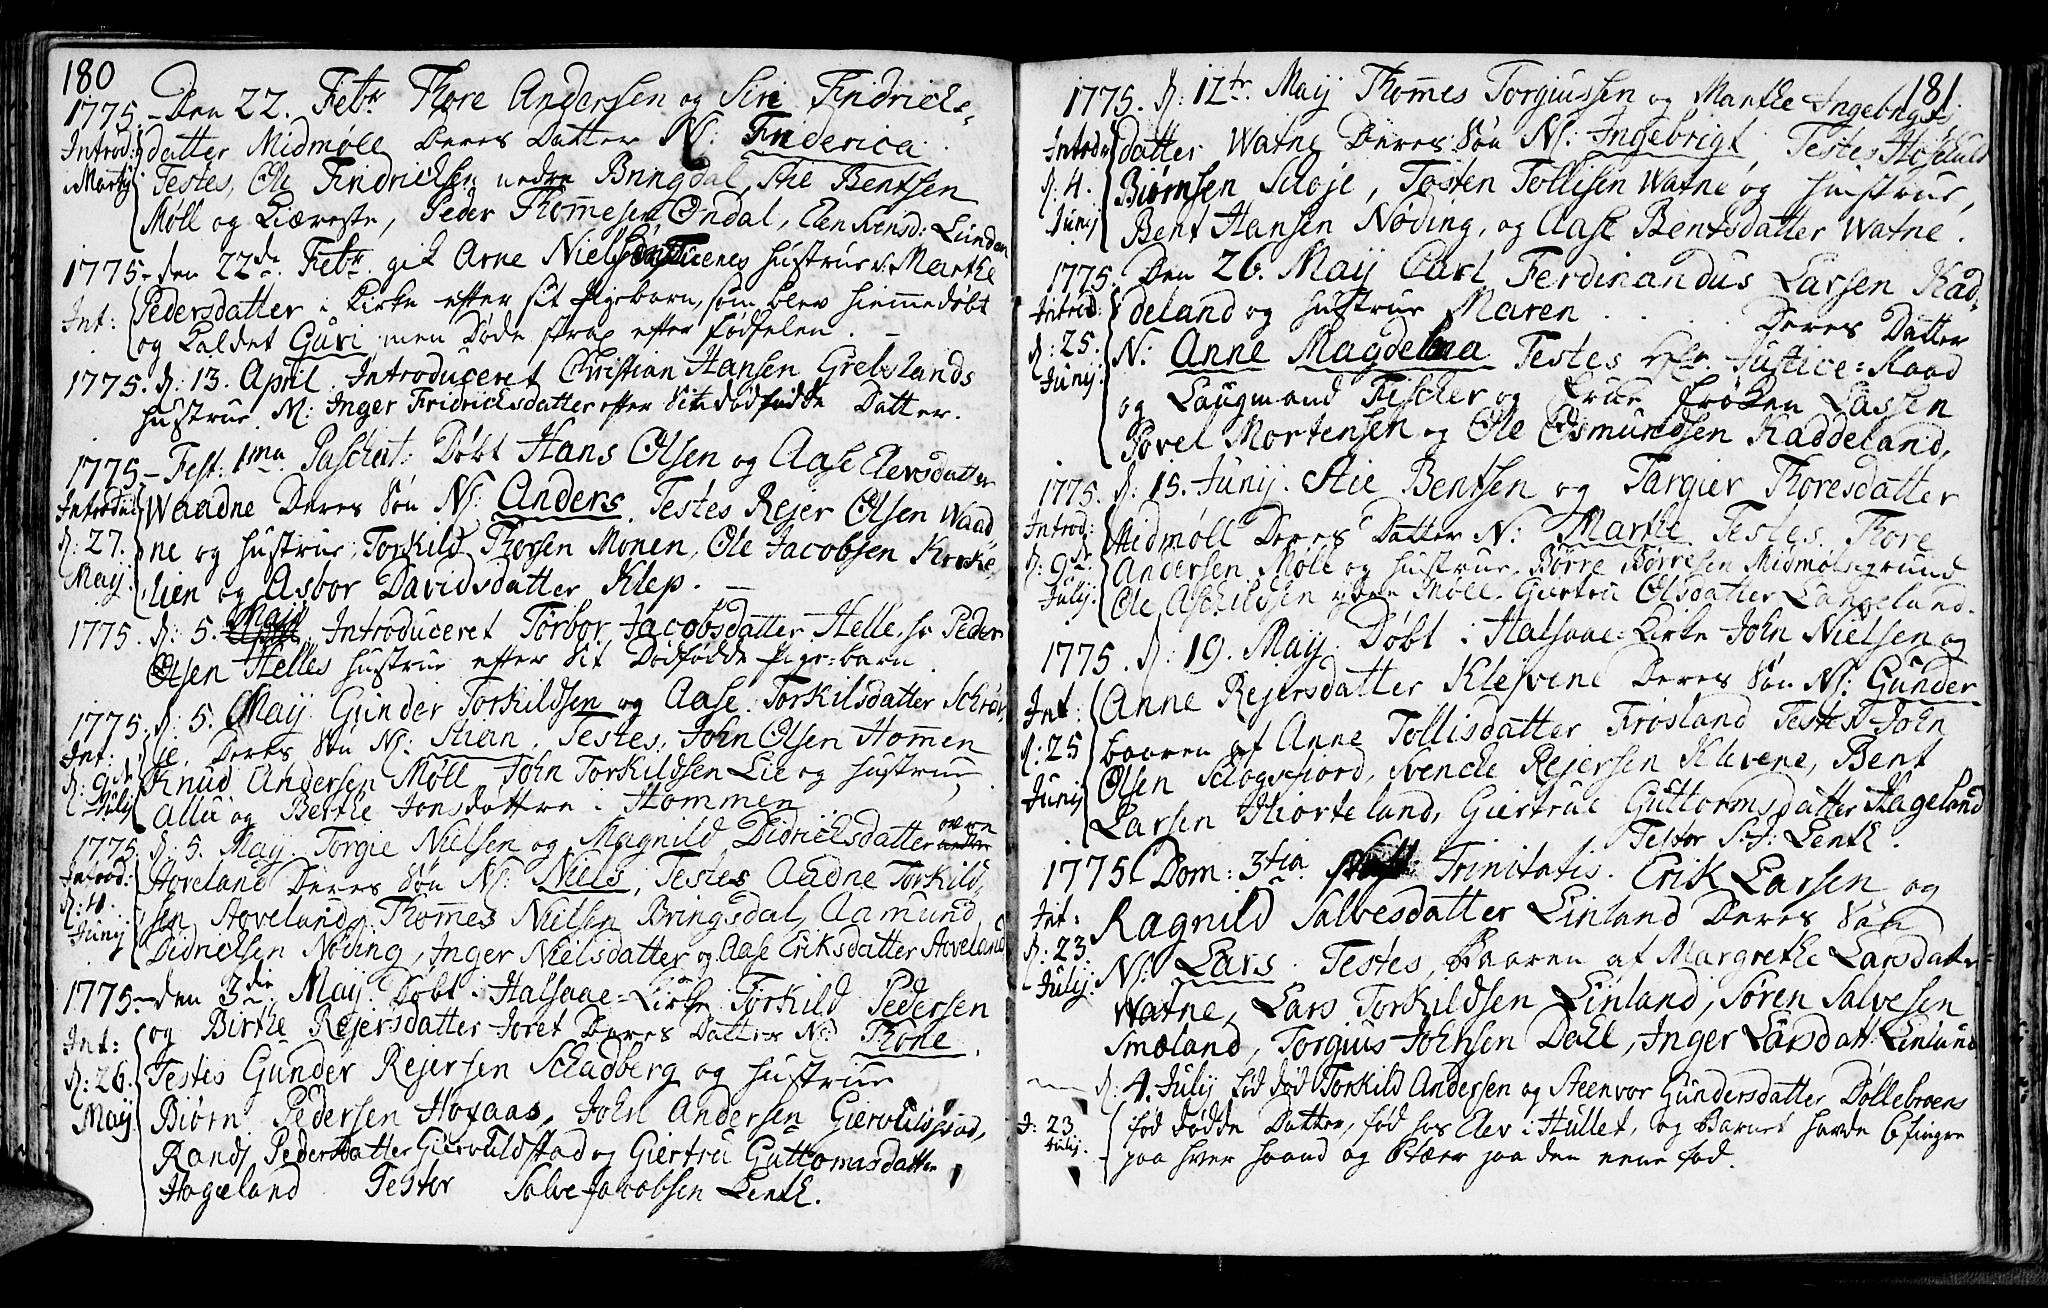 180
1775. Den 22. Febr. Thore Andersen og Siri Fridrichs-
Introd: datter Midmøll Deres Datter N: Friderica.
i Martij Testes, Ole Fridrichsen nedre Bringdal, Stie Bentsen
Møll og Kiæreste, Peder Thommesen Ondal, Elen Lunden
1775. den 22de Febr. gik Arne Nielsøn hustrue N: Marthe
Int: Pedersdatter i Kirke efter sit Pigebarn, som blev hiemmedøbt
og kaldet Guri men Døde strax efter fødselen.
1775. d: 13. April. Introduceret Christian Hansen Grebslands
hustrue N: Inger Fridrichsdatter efter sit dødfødde Datter.
1775 - Fest: 1ma Paschat: Døbt Hans Olsen og Aase Elevsdatter
Introd: Waadne Deres Søn N: Anders. Testes Rejer Olsen Waad-
d: 27. ne og hustrue, Torkild Thorsen Monen, Ole Jacobsen Kroke-
Maij lien og Asbor Davidsdatter Klep.
1775. d: 5. Maij Introduceret Torbor Jacobsdatter Helle, Peder
Olsen Helles hustrue efter sit Dødfødde Pige-barn.
1775. d: 5. Maij Gunder Torkildsen og Aase Torkilsdatter Schrøv-
Int: je, Deres Søn N: Stian, Testes, John Olsen Hommen
d: 9de Knud Andersen Møll, John Torkildsen Lie og hustrue,
Julij Allu og Berthe Jonsdattre i Hommen
1775 d: 5. Maij. Torgie Nielsen og Magnild Didrichsdatter øvre
Introd: Aaveland Deres Søn N: Niels, Testes Audne Torkild-
d: 11. sen Aaveland, Thommes Nielsen Bringsdal, Aamund
Junij Didrichsen Nøding, Inger Nielsdatter og Aase Eriksdatter Aaveland
1775 - den 3die Maij Døbt i Halsaae-Kirke Torkild Pedersen
og Birthe Rejersdatter Joret Deres Datter N: Thone.
Int: Testes Gunder Rejersen Schadberg og hustrue
d: 26. Biørn Pedersen Hoxaas, John Andersen Giervildstad,
Maij Rand Pedersdatter Giervuldstad og Giertru Guttormsdatter
Hageland Testor Salve Jacobsen Lenth.
181.
1775. d: 12te Maij Thommes Torgiussen og Marthe Ingebrigts
Introd datter Watne Deres Søn N: Ingebrigt, Testes
d: 4. Biørnsen Scløje, Tosten Tollisen Watne og hustrue,
Junij Bent Hansen Nøding, og Aase Bentsdatter Watne.
1775. Den 26. Maij Carl Ferdinandus Larsen Kad-
Introd: deland og hustrue Maren . . . . Deres Datter
d: 25. N: Anne Magdelena Testes Hr. Justice-Raad
Junij og Laugmand Fischer og Frue Frøken Lassen
Povel Mortensen og Ole Osmundsen Kaddeland,
1775. d: 15. Junij. Stie Bentsen og Targier Thoresdatter
Introd: Midmøll Deres Datter N: Marthe Testes Thore
d: 9de Andersen Møll og hustrue, Børre Børresen Midmølsgrund
Julij. Ole Aschildsen ydere Møll. Giertru Olsdatter Langeland.
1775. d: 19. Maij. Døbt i Halsaae-Kirke John Nielsen og
Int: Anne Rejersdatter Klevene Deres Søn N: Gunder
d: 25 baaren af Anne Tollisdatter Frøsland Testes John
Junij Olsen Schogsfiord, Svenche Rejersen Klevene, Bent
Larsen Hiorteland, Giertrue Guttormsdatter Hageland
Testor S.J: Lenth.
1775. Dom: 3tia Trinitatis. Erik Larsen og
Int: Ragnild Salvesdatter Einland Deres Søn
d: 23. N: Lars. Testes, Baaren af Margrethe Larsdatter
Julij: Watne, Lars Torkildsen Einland, Søren Salvesen
Smæland, Torgius Johnsen Dahl, Inger Larsdatt: Einland
d: 4. Julij fød død Torkild Andersen og Steenvor Gundersdatter Døllebroens
d: 23. fød dødde Datter, fød hos Elev i Hullet, og Barnet havde 6 fingre
Julij. paa hver haand og 6 tæer paa den eene fod.